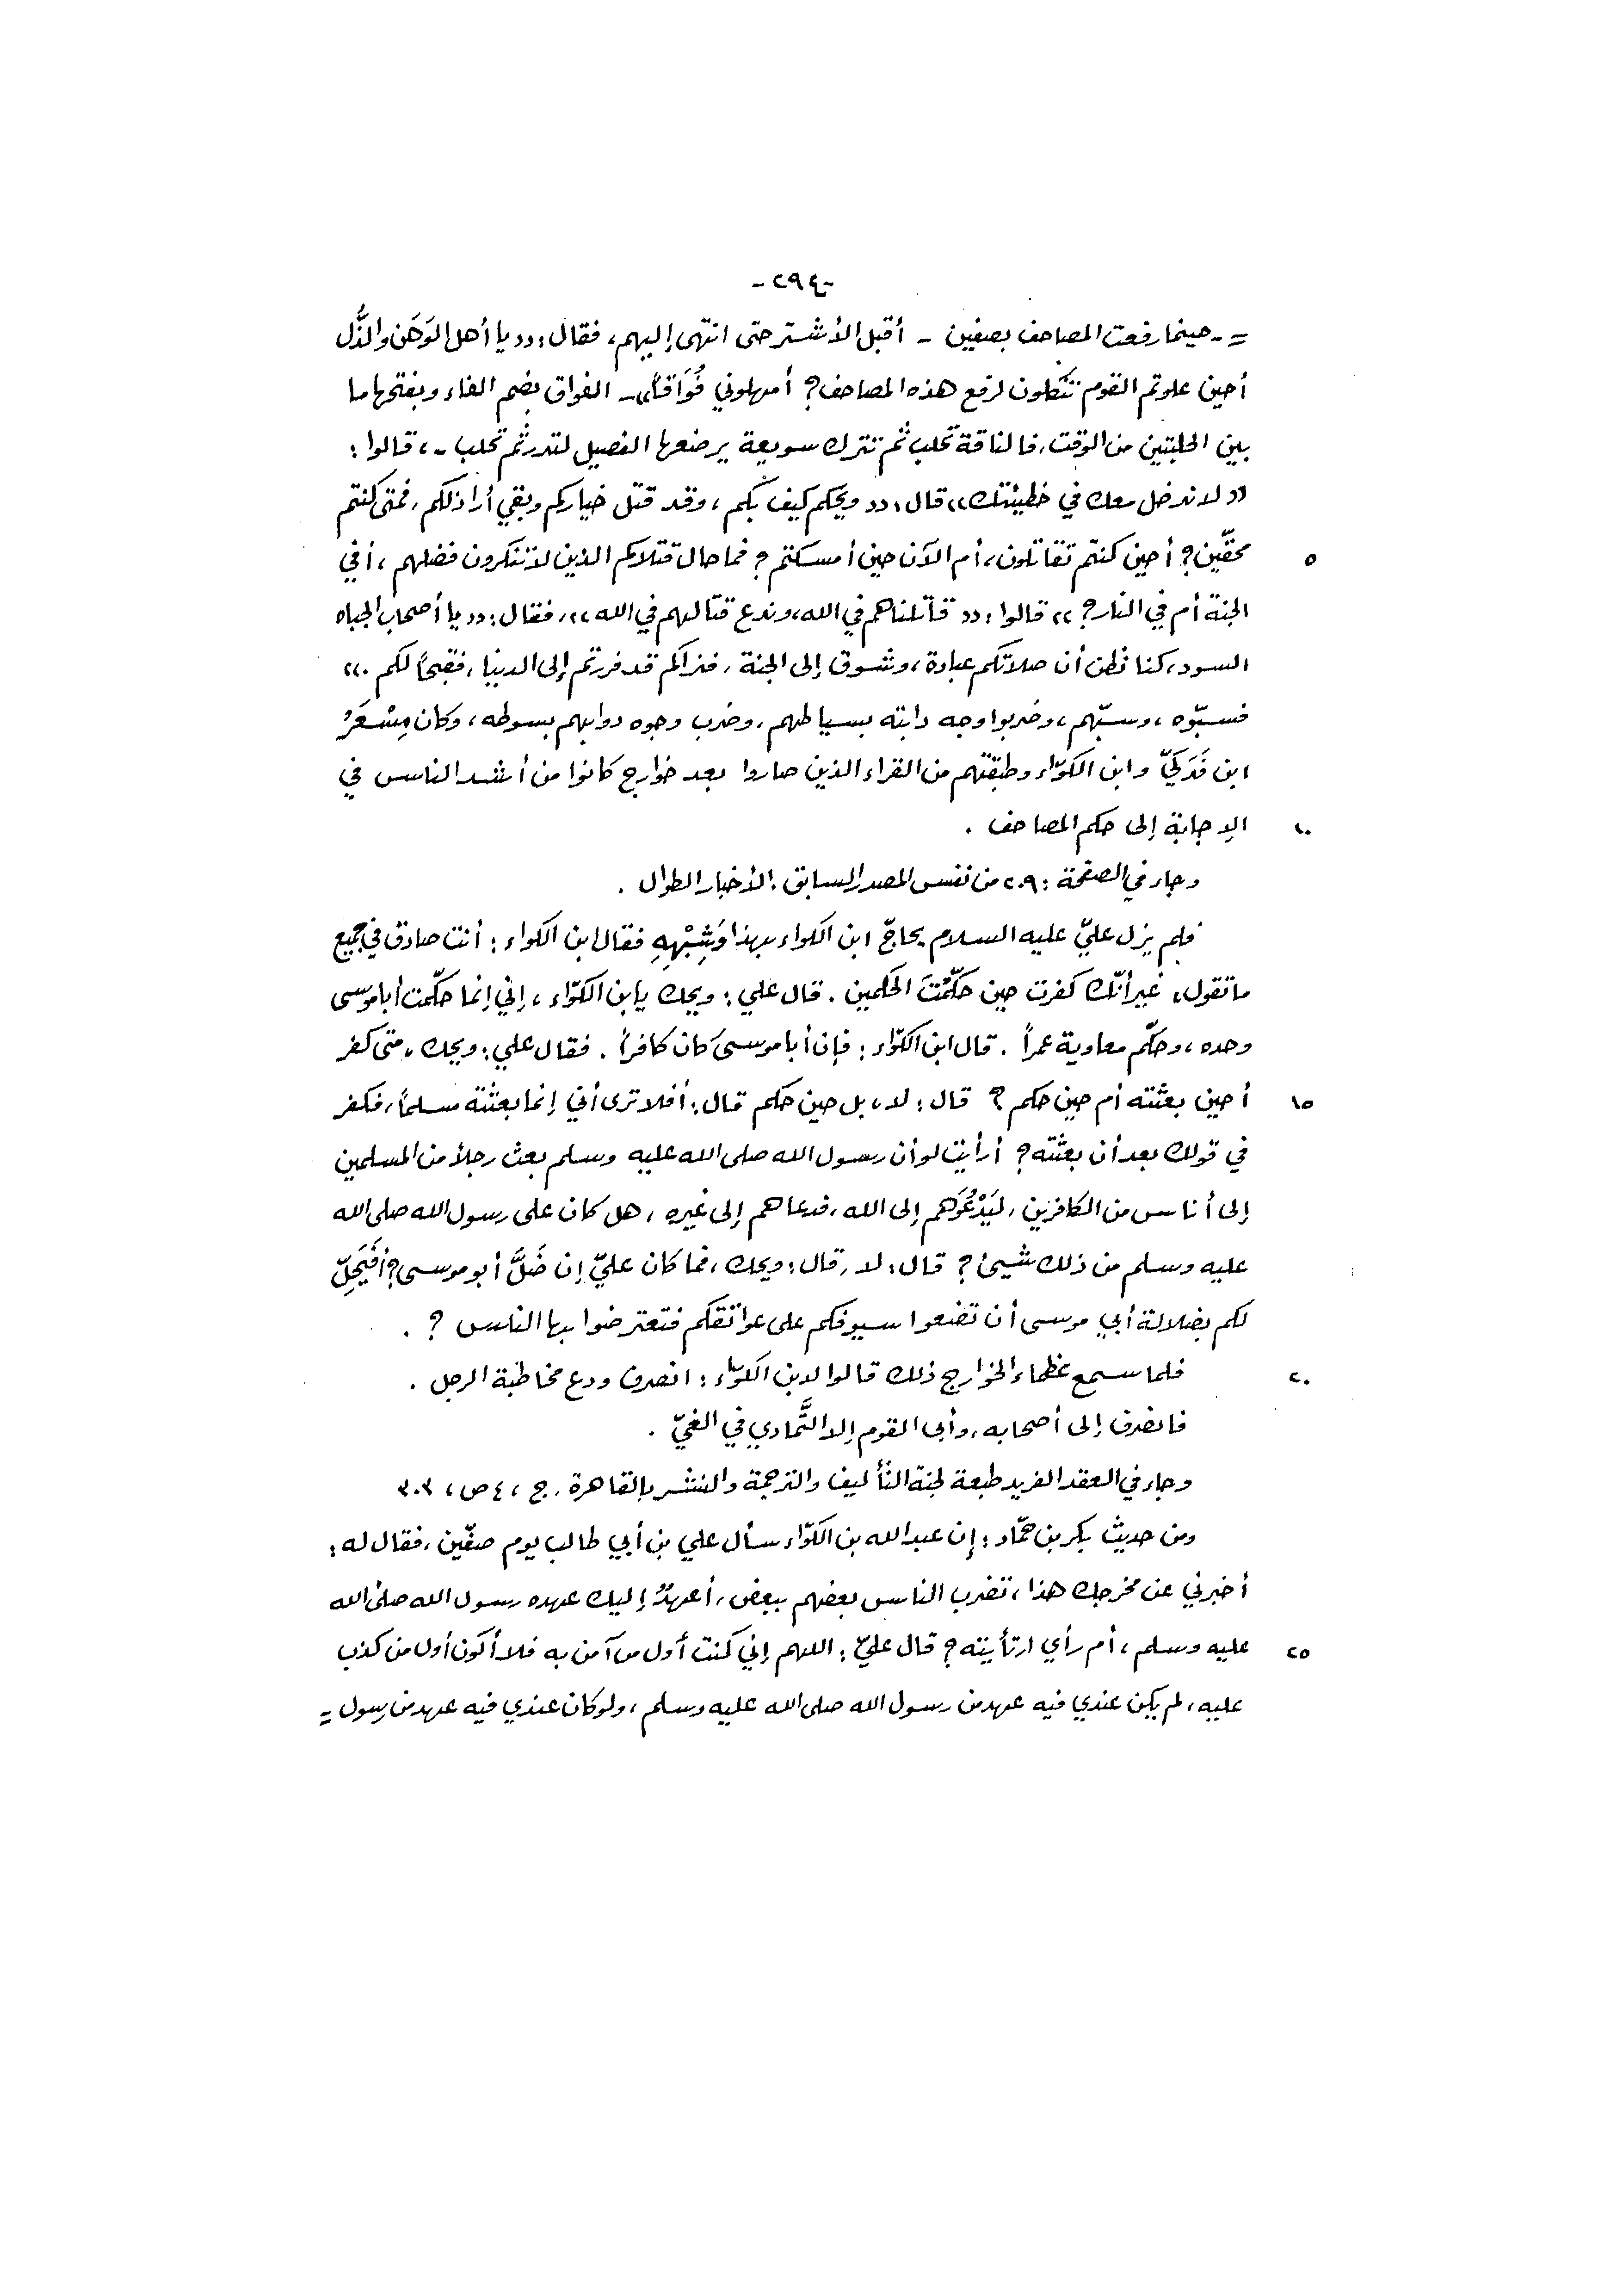 -٢٩٤-
= - حينما رفعت المصاحف بصفين - أقبل الأشتر حتى انتهى إليهم، فقال: «يا أهل الوَهَن والذُّل
أحين علوتم القوم تنكلون لرفع هذه المصاحف؟ أمهلوني فُوَاقاً» - الفواق بضم الفاء وبفتحها ما
بين الحلبتين من الوقت، فالناقة تحلب ثم تترك سويعة يرضعها الفصيل لتدر ثم تحلب -، قالوا:
«لا ندخل معك في خطيئتك» قال: «ويحكم كيف بكم، وقد قتل خياركم وبقي أراذلكم، فمتى كنتم
٥ محقّين؟ أحين كنتم تقاتلون، أم الآن حين أمسكتم؟ فما حال قتلاكم الذين لا تنكرون فضلهم، أفي
الجنة أم في النار؟» قالوا: «قاتلناهم في الله، وندع قتالهم في الله»، فقال: «يا أصحاب الجباه
السود، كنا نظن أن صلاتكم عبادة، وشوق إلى الجنة، فنراكم قد فررتم إلى الدنيا، فقبحاً لكم.»
فسبّوه، وسبّهم، وضربوا وجه دابته بسياطهم، وضرب وجوه دوابهم بسوطه، وكان مِسْعَرُ
ابن فَدَكيّ وابن الكوّاء وطبقتهم من القراء الذين صاروا بعد خوارج كانوا من أشد الناس في
١٠ الإجابة إلى حكم المصاحف .
وجاء في الصفحة: ٢٠٩ من نفس المصدر السابق: الأخبار الطوال .
فلم يزل عليّ عليه السلام يحاجّ ابن الكواء بهذا وَشِبْهِهِ فقال ابن الكواء: أنت صادق في جميع
ما تقول، غير أنّك كفرت حين حَكَّمْتَ الحَكمين . قال علي: ويحك يا بن الكوّاء، إني إنما حكّمت أبا موسى
وحده، وحكّم معاوية عمراً . قال ابن الكوّاء: فإن أبا موسىَ كان كافراً . فقال علي: ويحك، متى كفر
١٥ أحين بعثته أم حين حكم؟ قال: لا، بل حين حكم قال: أفلا ترى أني إنما بعثته مسلماً، فكفر
في قولك بعد أن بعثته؟ أرأيت لو أن رسول الله صلى الله عليه وسلم بعث رجلاً من المسلمين
إلى أناس من الكافرين، ليَدْعُوَهم إلى الله، فدعاهم إلى غيره، هل كان على رسول الله صلى الله
عليه وسلم من ذلك شيئ؟ قال: لا، قال: ويحك، فما كان عليّ إن ضَلَّ أبو موسى؟ أَفَيَحِلّ
لكم بضلالة أبي موسى أن تضعوا سيوفكم على عواتقكم فتعترضوا بها الناس؟ .
٢٠ فلما سمع عظماء الخوارج ذلك قالوا لابن الكوّاء: انصرف ودع مخاطبة الرجل .
فانصرف إلى أصحابه، وأبى القوم إلا التَّمادي في الغيّ .
وجاء في العقد الفريد طبعة لجنة التأليف والترجمة والنشر بالقاهرة، ج، ٤ ص، ٣٠٣
ومن حديث بكر بن حمّاد: إن عبد الله بن الكوّاء سأل علي بن أبي طالب يوم صفّين، فقال له:
أخبرني عن مخرجك هذا، تضرب الناس بعضهم ببعض، أعهدٌ إليك عهده رسول الله صلى الله
٢٥ عليه وسلم، أم رأي ارتأيته؟ قال عليّ: اللهم إني كنت أول من آمن به فلا أكون أول من كذب
عليه، لم يكن عندي فيه عهد من رسول الله صلى الله عليه وسلم، ولو كان عندي فيه عهد من رسول =